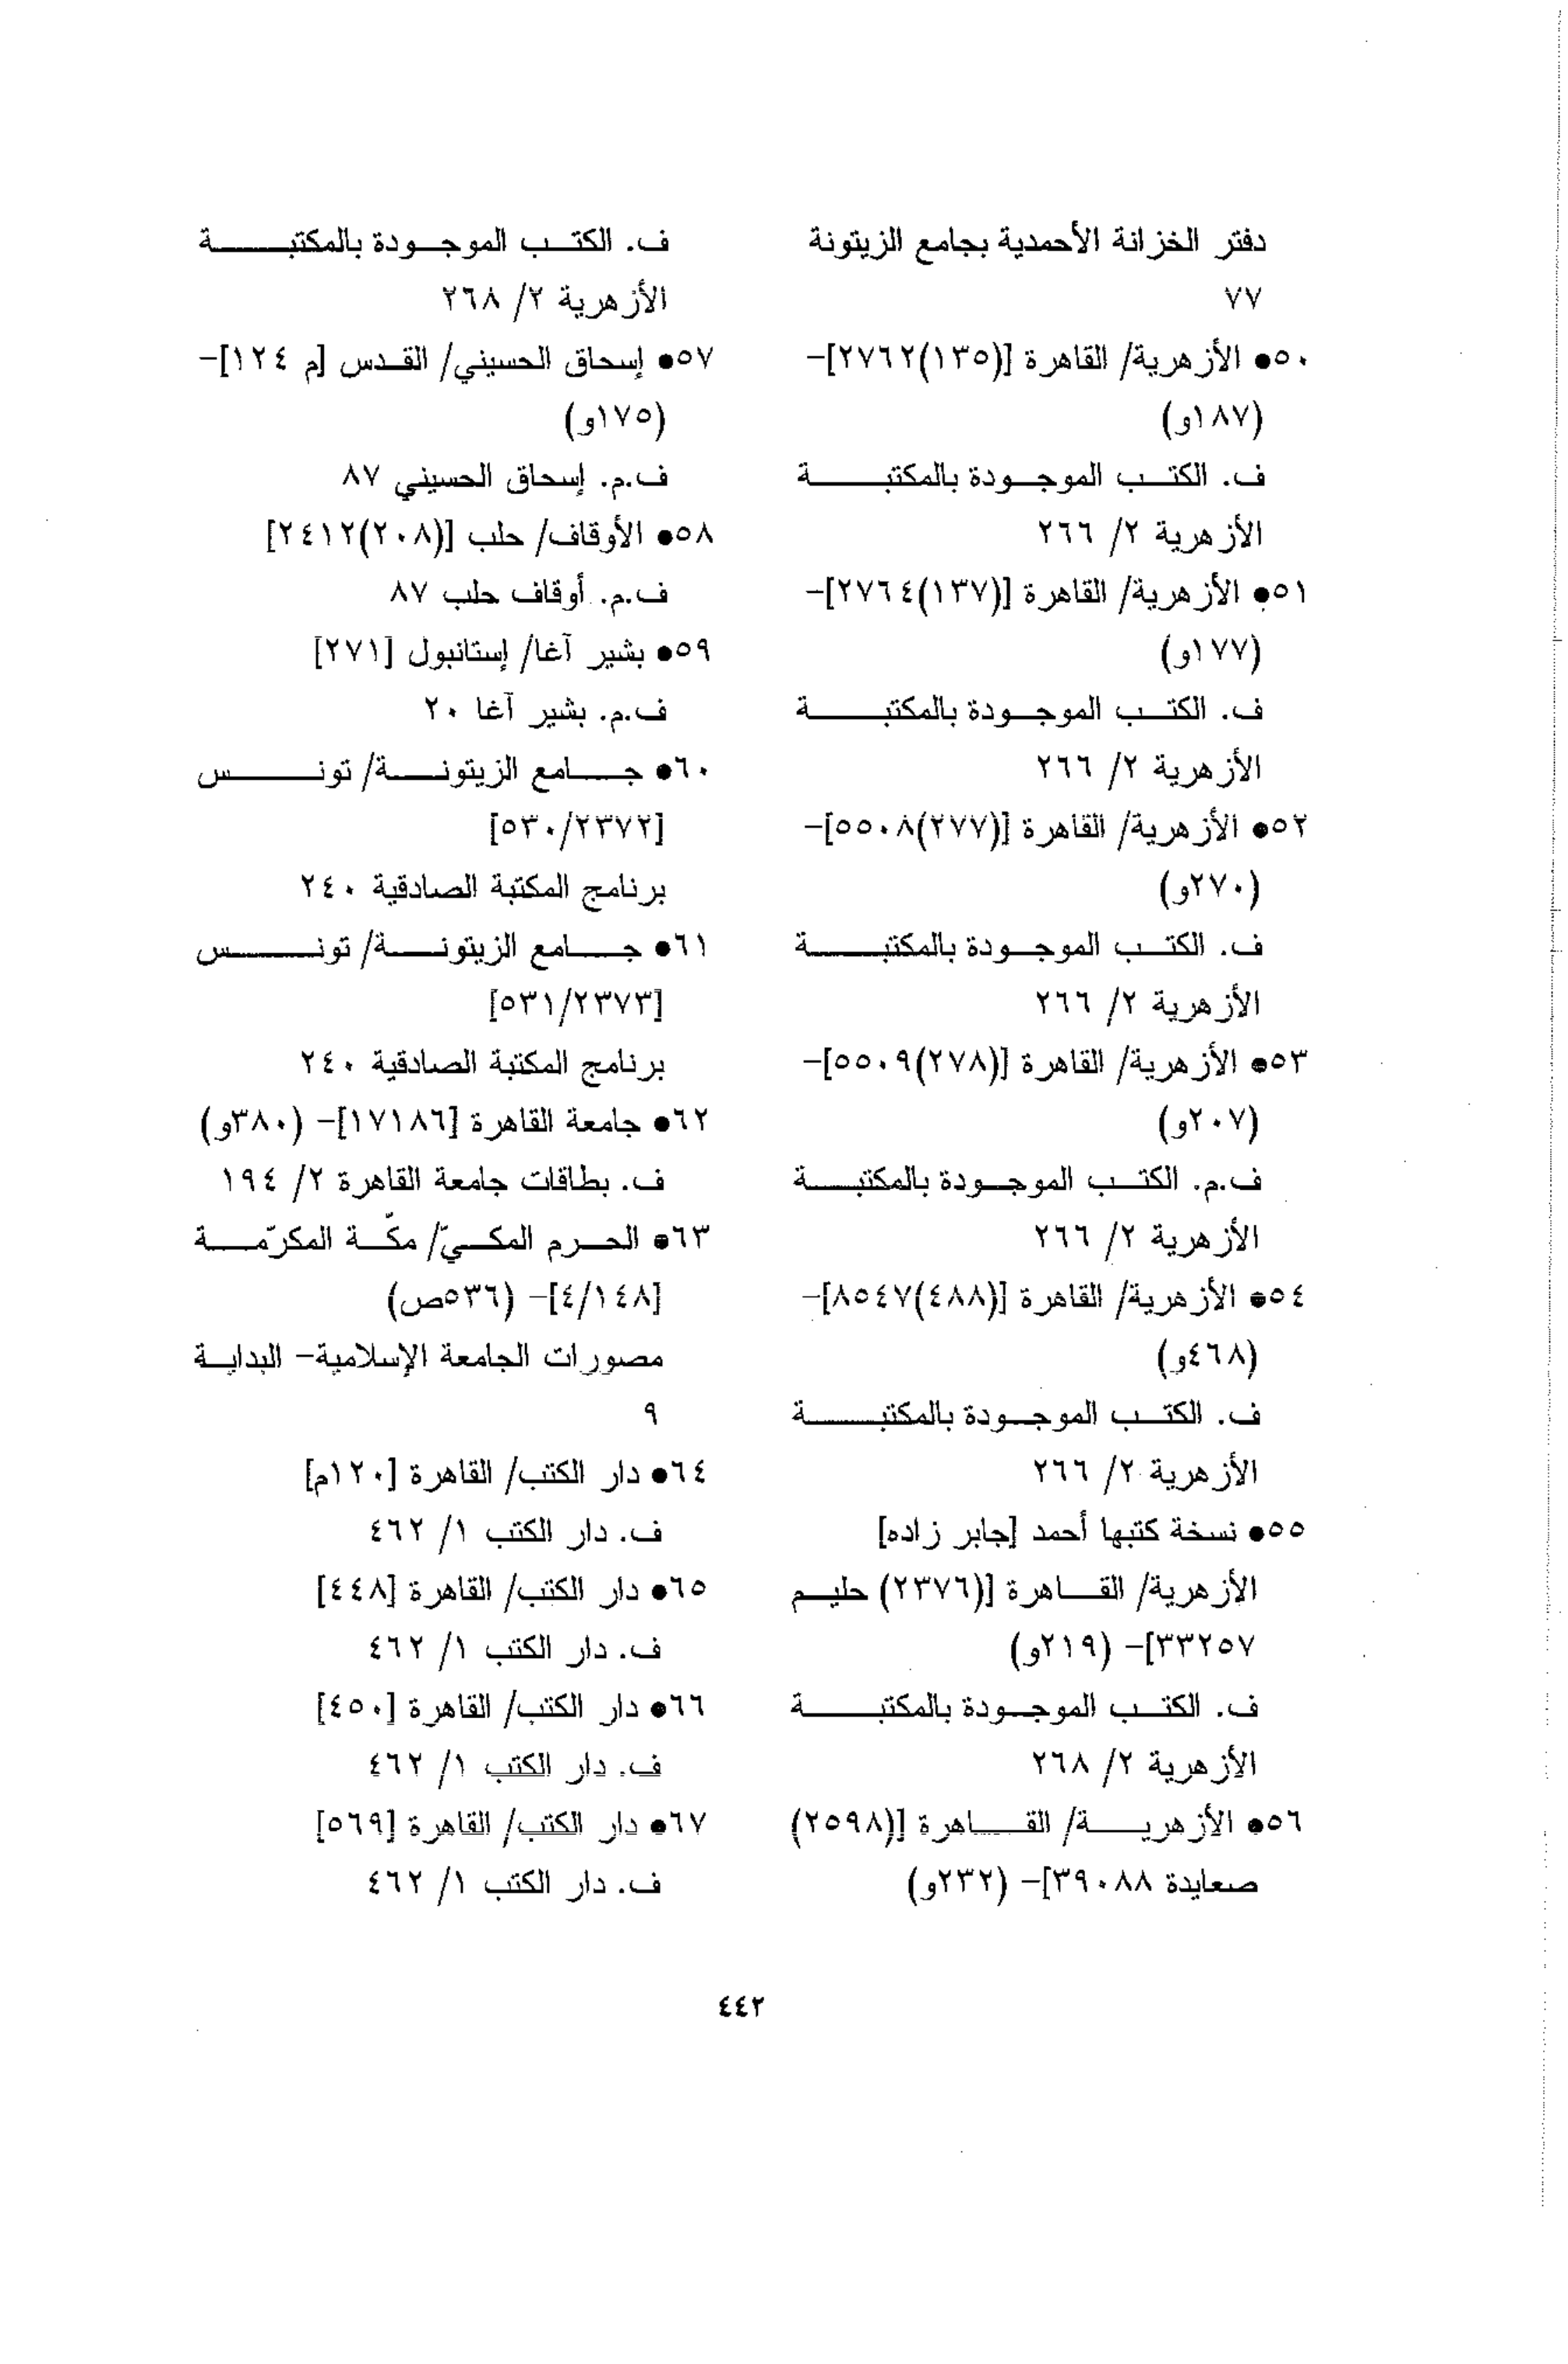 دفتر الخزانة الأحمدية بجامع الزيتونة
٧٧
٥٠● الأزهرية/ القاهرة [(١٣٥)٢٧٦٢]-
(١٨٧و)
ف. الكتب الموجودة بالمكتبة
الأزهرية ٢/ ٢٦٦
٥١● الأزهرية/ القاهرة [(١٣٧)٢٧٦٤]-
(١٧٧و)
ف. الكتب الموجودة بالمكتبة
الأزهرية ٢/ ٢٦٦
٥٢● الأزهرية/ القاهرة [(٢٧٧)٥٥٠٨]-
(٢٧٠و)
ف. الكتب الموجودة بالمكتبة
الأزهرية ٢/ ٢٦٦
٥٣● الأزهرية/ القاهرة [(٢٧٨)٥٥٠٩]-
(٢٠٧و)
ف.م. الكتب الموجودة بالمكتبة
الأزهرية ٢/ ٢٦٦
٥٤● الأزهرية/ القاهرة [(٤٨٨)٨٥٤٧]-
(٤٦٨و)
ف. الكتب الموجودة بالمكتبة
الأزهرية ٢/ ٢٦٦
٥٥● نسخة كتبها أحمد [جابر زاده]
الأزهرية/ القاهرة [(٢٣٧٦) حليم
٣٣٢٥٧]- (٢١٩و)
ف. الكتب الموجودة بالمكتبة
الأزهرية ٢/ ٢٦٨
٥٦● الأزهرية/ القاهرة [(٢٥٩٨)
صعايدة ٣٩٠٨٨]- (٢٣٢و)
ف. الكتب الموجودة بالمكتبة
الأزهرية ٢/ ٢٦٨
٥٧● إسحاق الحسيني/ القدس [م ١٢٤]-
(١٧٥و)
ف.م. إسحاق الحسيني ٨٧
٥٨● الأوقاف/ حلب [(٢٠٨)٢٤١٢]
ف.م. أوقاف حلب ٨٧
٥٩● بشير آغا/ إستانبول [٢٧١]
ف.م. بشير آغا ٢٠
٦٠● جامع الزيتونة/ تونس
[٥٣٠/٢٣٧٢]
برنامج المكتبة الصادقية ٢٤٠
٦١● جامع الزيتونة/ تونس
[٥٣١/٢٣٧٣]
برنامج المكتبة الصادقية ٢٤٠
٦٢● جامعة القاهرة [١٧١٨٦]- (٣٨٠و)
ف. بطاقات جامعة القاهرة ٢/ ١٩٤
٦٣● الحرم المكيّ/ مكّة المكرّمة
[٤/١٤٨]- (٥٣٦ص)
مصورات الجامعة الإسلامية- البداية
٩
٦٤● دار الكتب/ القاهرة [١٢٠م]
ف. دار الكتب ١/ ٤٦٢
٦٥● دار الكتب/ القاهرة [٤٤٨]
ف. دار الكتب ١/ ٤٦٢
٦٦● دار الكتب/ القاهرة [٤٥٠]
ف. دار الكتب ١/ ٤٦٢
٦٧● دار الكتب/ القاهرة [٥٦٩]
ف. دار الكتب ١/ ٤٦٢
٤٤٢